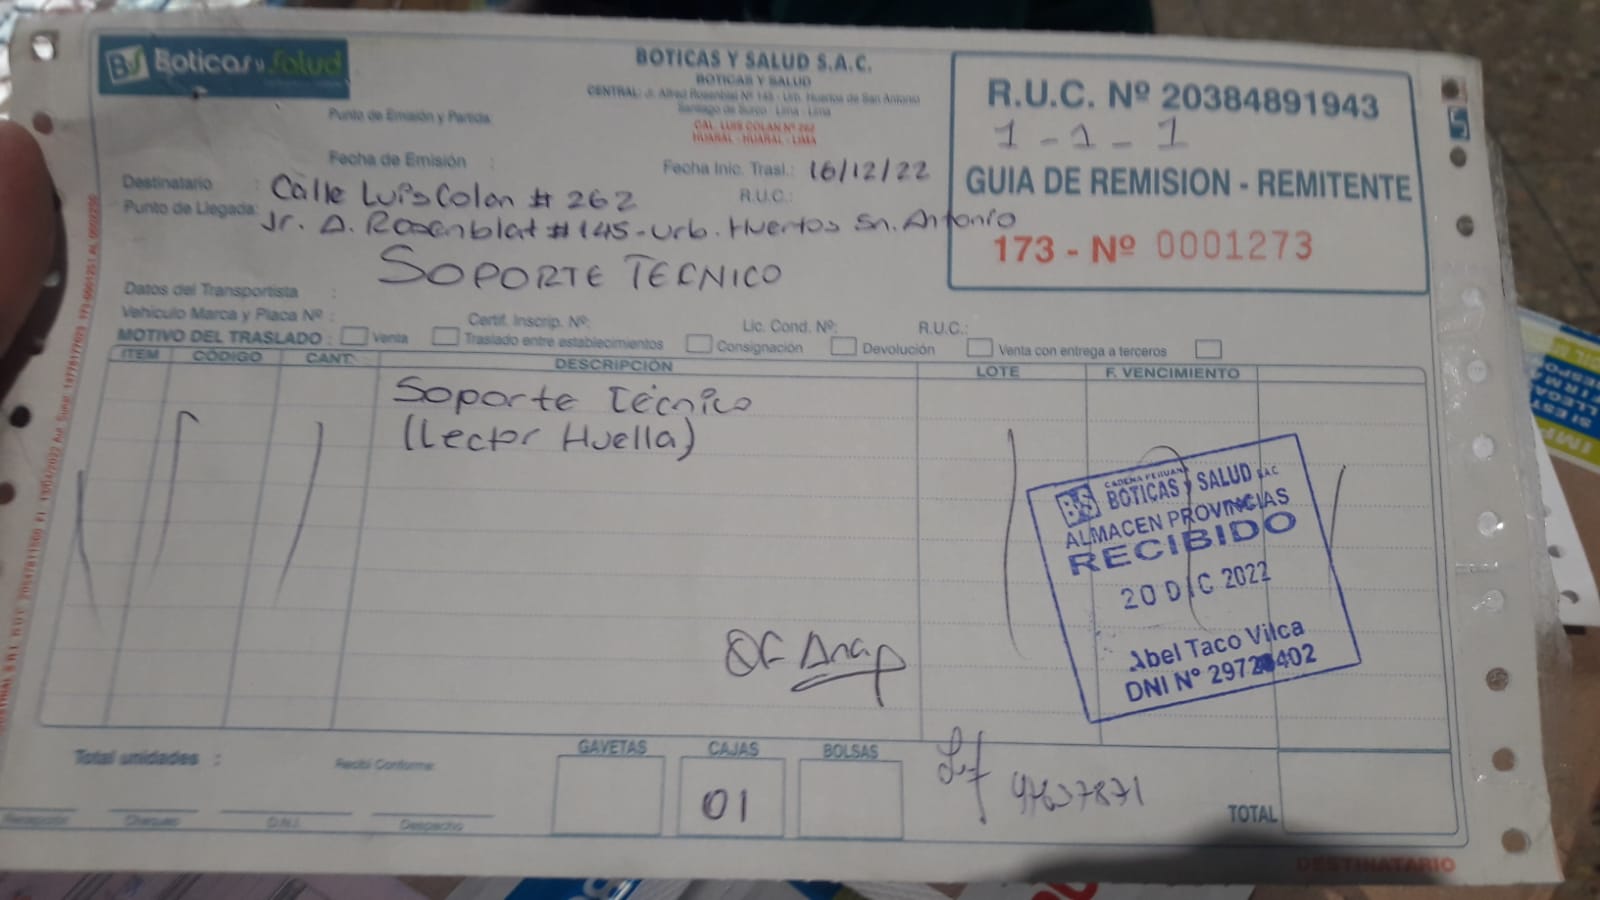 BS Boticas y Salud
BOTICAS Y SALUD S.A.C.
BOTICAS Y SALUD
CENTRAL: Jr. Alfred Rosenblat Nº 145 - Urb. Huertos de San Antonio
Santiago de Surco - Lima - Lima
CAL. LUIS COLAN Nº 262
HUARAL - HUARAL - LIMA
R.U.C. Nº 20384891943
1 - 1 - 1
GUIA DE REMISION - REMITENTE
173 - Nº 0001273
Punto de Emisión y Partida:
Fecha de Emisión :
Fecha Inic. Trasl.: 16/12/22
Destinatario : Calle Luis Colan # 262
R.U.C.:
Punto de Llegada: Jr. A. Rosenblat # 145 - Urb. Huertos Sn. Antonio
SOPORTE TECNICO
Datos del Transportista :
Vehículo Marca y Placa Nº :
Certif. Inscrip. Nº:
Lic. Cond. Nº:
R.U.C.:
MOTIVO DEL TRASLADO : Venta Traslado entre establecimientos Consignación Devolución Venta con entrega a terceros
ITEM CÓDIGO CANT. DESCRIPCIÓN LOTE F. VENCIMIENTO
Soporte Técnico
(Lector Huella)
CADENA PERUANA
BS BOTICAS Y SALUD S.A.C
ALMACEN PROVINCIAS
RECIBIDO
20 DIC 2022
Abel Taco Vilca
Total unidades :
Recibí Conforme:
GAVETAS CAJAS BOLSAS
01
TOTAL
Recepción Chequeo D.N.I. Despacho
DESTINATARIO